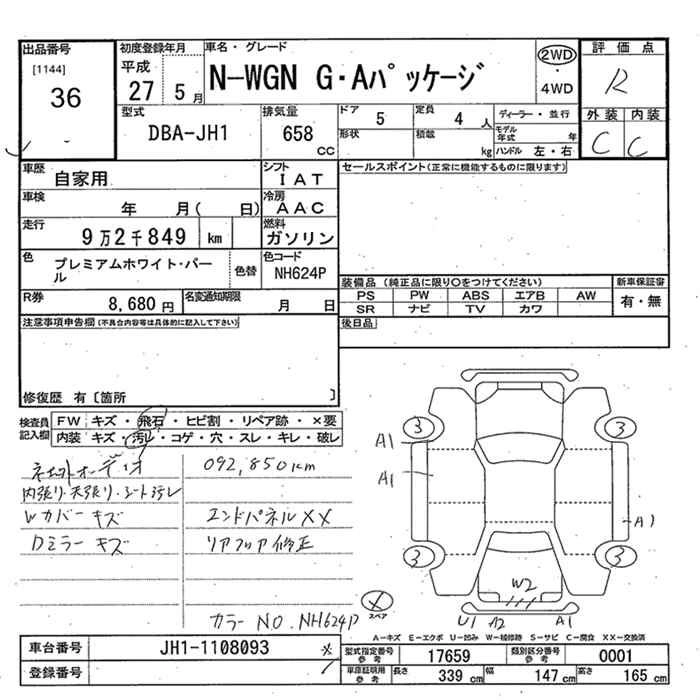 出品番号
[1144]
36
初度登録年月
平成
27 5月
車名・グレード
N-WGN G・Aパッケージ
2WD
・
4WD
評価点
R
外装 内装
C C
型式
DBA-JH1
排気量
658
cc
ドア
5
形状
定員
4人
積載
kg
ディーラー・並行
モデル年式 年
ハンドル 左・右
車歴
自家用
シフト
IAT
車検
年 月( 日)
冷房
AAC
走行
9万2千849 km
燃料
ガソリン
色
プレミアムホワイト・パール
色替
色コード
NH624P
R券
8,680円
名変通知期限
月 日
セールスポイント(正常に機能するものに限ります)
装備品(純正品に限り○をつけてください)
PS PW ABS エアB AW
SR ナビ TV カワ
新車保証書
有・無
後日品
注意事項申告欄(不具合内容等は具体的に記入して下さい)
修復歴 有〔箇所 〕
検査員記入欄
FW キズ・飛石・ヒビ割・リペア跡・×要
内装 キズ・汚レ・コゲ・穴・スレ・キレ・破レ
092,850km
内張り・天張り・シート汚レ
Wカバーキズ
エンドパネルXX
Dミラーキズ
リアフロア修正
カラーNO.NH624P
3 3
A1
A1
A1
3 3
W2
U1 A2 A1
スペア
A−キズ E−エクボ U−凹み W−補修跡 S−サビ C−腐食 XX−交換済
車台番号
JH1-1108093
登録番号
型式指定番号
参考
17659
類別区分番号
参考
0001
車庫証明用
参考
長さ 339 cm
幅 147 cm
高さ 165 cm